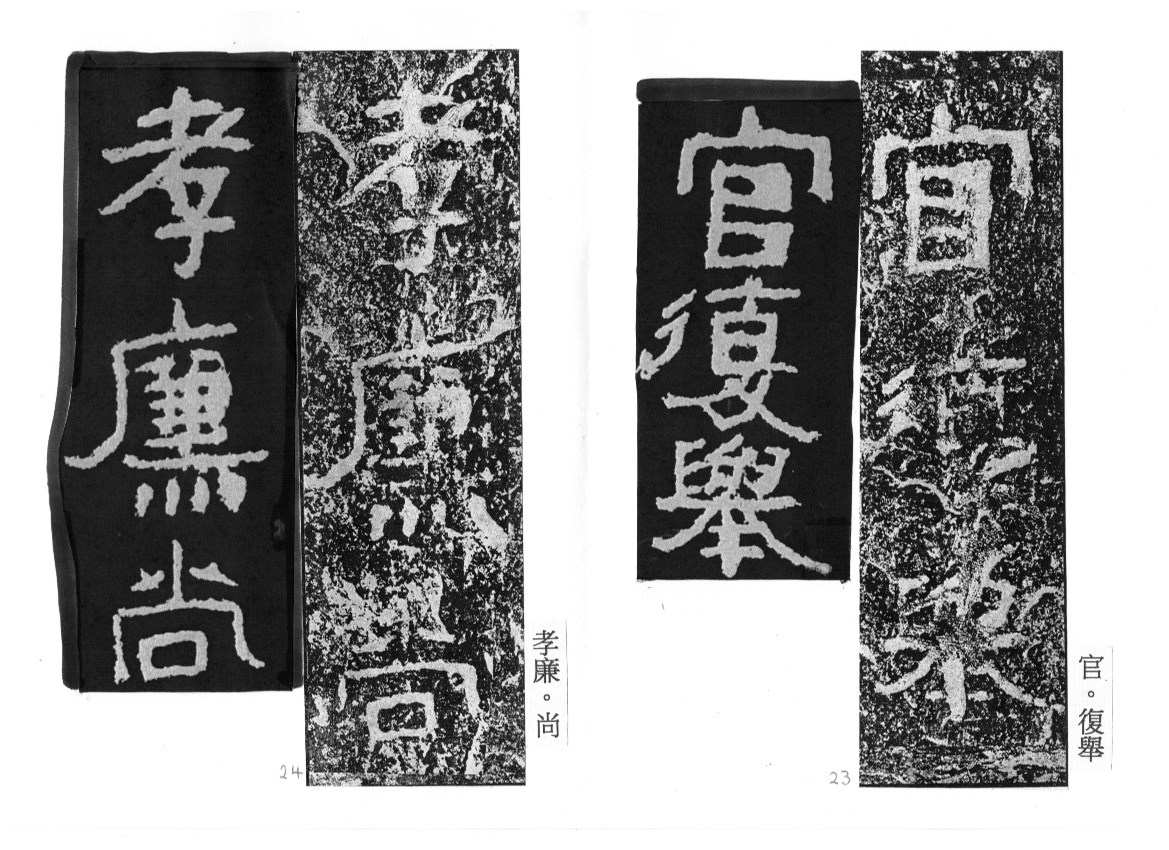 官。復舉
官復舉
官復舉
23
孝廉。尚
孝廉尚
孝廉尚
24